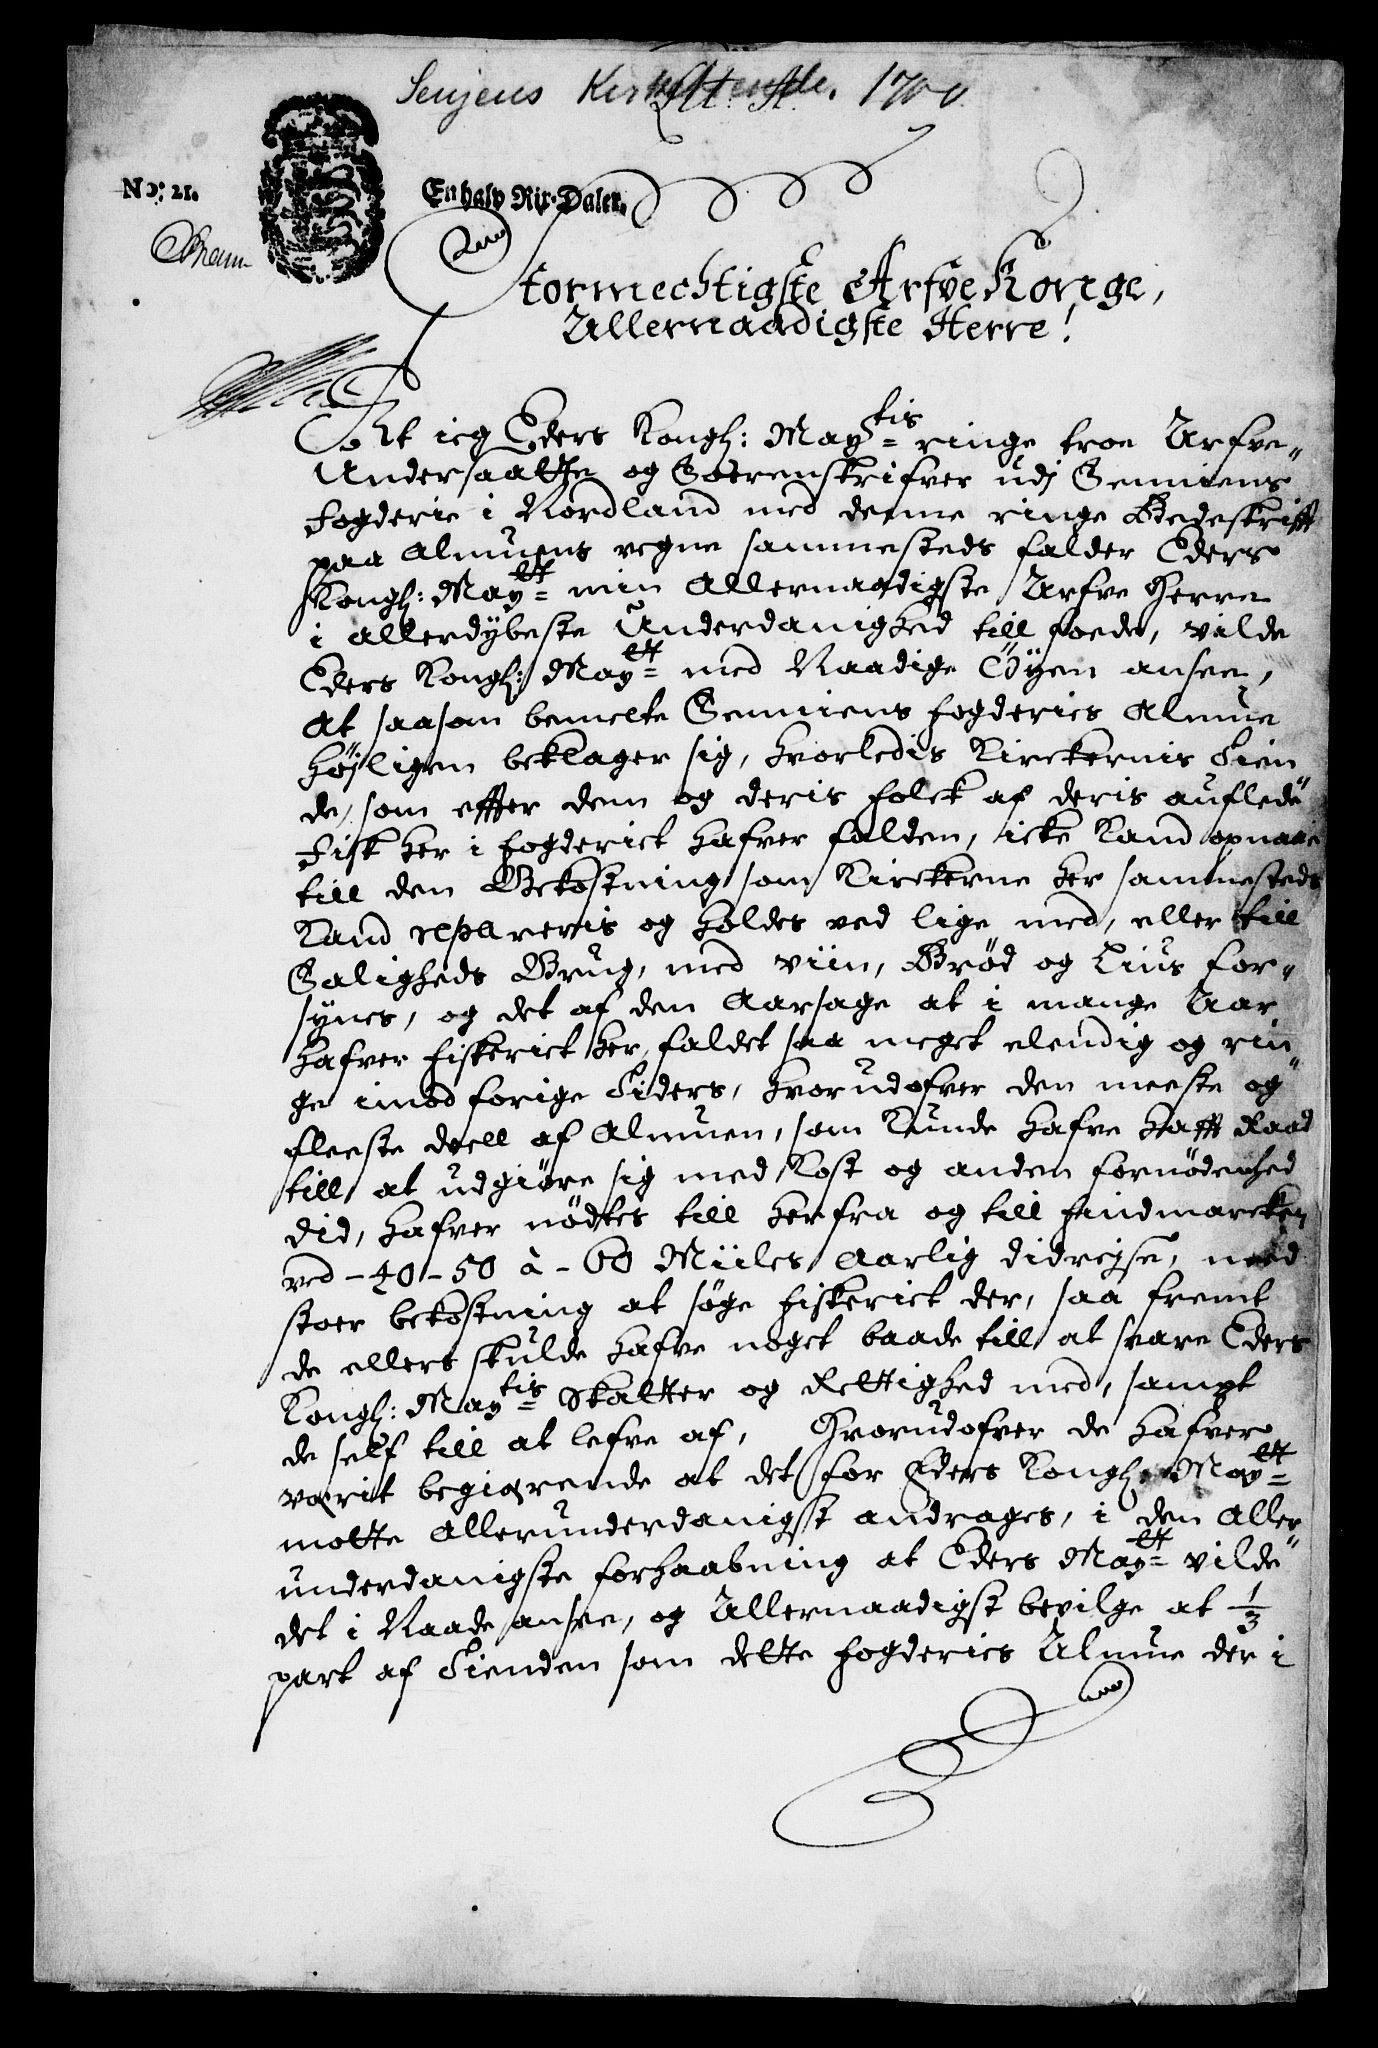 Senjens Kirketiende. 1700
No: 21.
En halv Rix-Daler.
Stormechtigste Arfve Konge,
Allernaadigste Herre!
At ieg Eders Kongl: Maytis ringe troe Arfve-
Undersaatte og Soerenskrifver udj Senniens
fogderie i Nordland med denne ringe Bedeskrifft
paa Almuens vegne sammesteds falder Eders
Kongl: Maytt min Allernaadigste Arfve Herre
i allerdybeste Underdanighed till foede, vilde
Eders Kongl: Maytt med Naadige Öyen ansee,
At saasom bemelte Senniens fogderies Almue
höjligen beklager sig, hvorledis Kirckernis Tien
de, som effter dem og deris folck af deris auflede
Fisk her i fogderiet hafver falden, icke kand opnaae
till den Bekostning som Kirckerne her sammesteds
kand repareris og holdes ved lige med, eller till
Saligheds Brug, med viin, Brød og Lius for-
synes, og det af den Aarsage at i mange Aar
hafver fiskeriet her faldet saa meget elendig og rin
ge imod forige Tiders, hvorudofver den meeste og
fleeste deell af Almuen, som kunde hafve hafft Raad
till at udgiøre sig med Kost og anden fornødenhed
did, hafver nödtes till herfra og till findmarcken
ved - 40 - 50 à - 60 Miiles Aarlig didrejse, med
stoer bekostning at søge fiskeriet der, saa fremt
de ellers skulde hafve noget baade till at svare Eders
Kongl: Maytis Skatter og Rettighed med, sampt
de self till at lefve af, Hvorudofver de hafver
værit begiærende at det for Eders Kongl: Maytt
motte Allerunderdanigst andrages, i den Aller
underdanigste forhaabning at Eders Maytt vilde
det i Naade ansee, og Allernaadigst bevilge at 1/3
part af Tienden som dette fogderies Almue der i